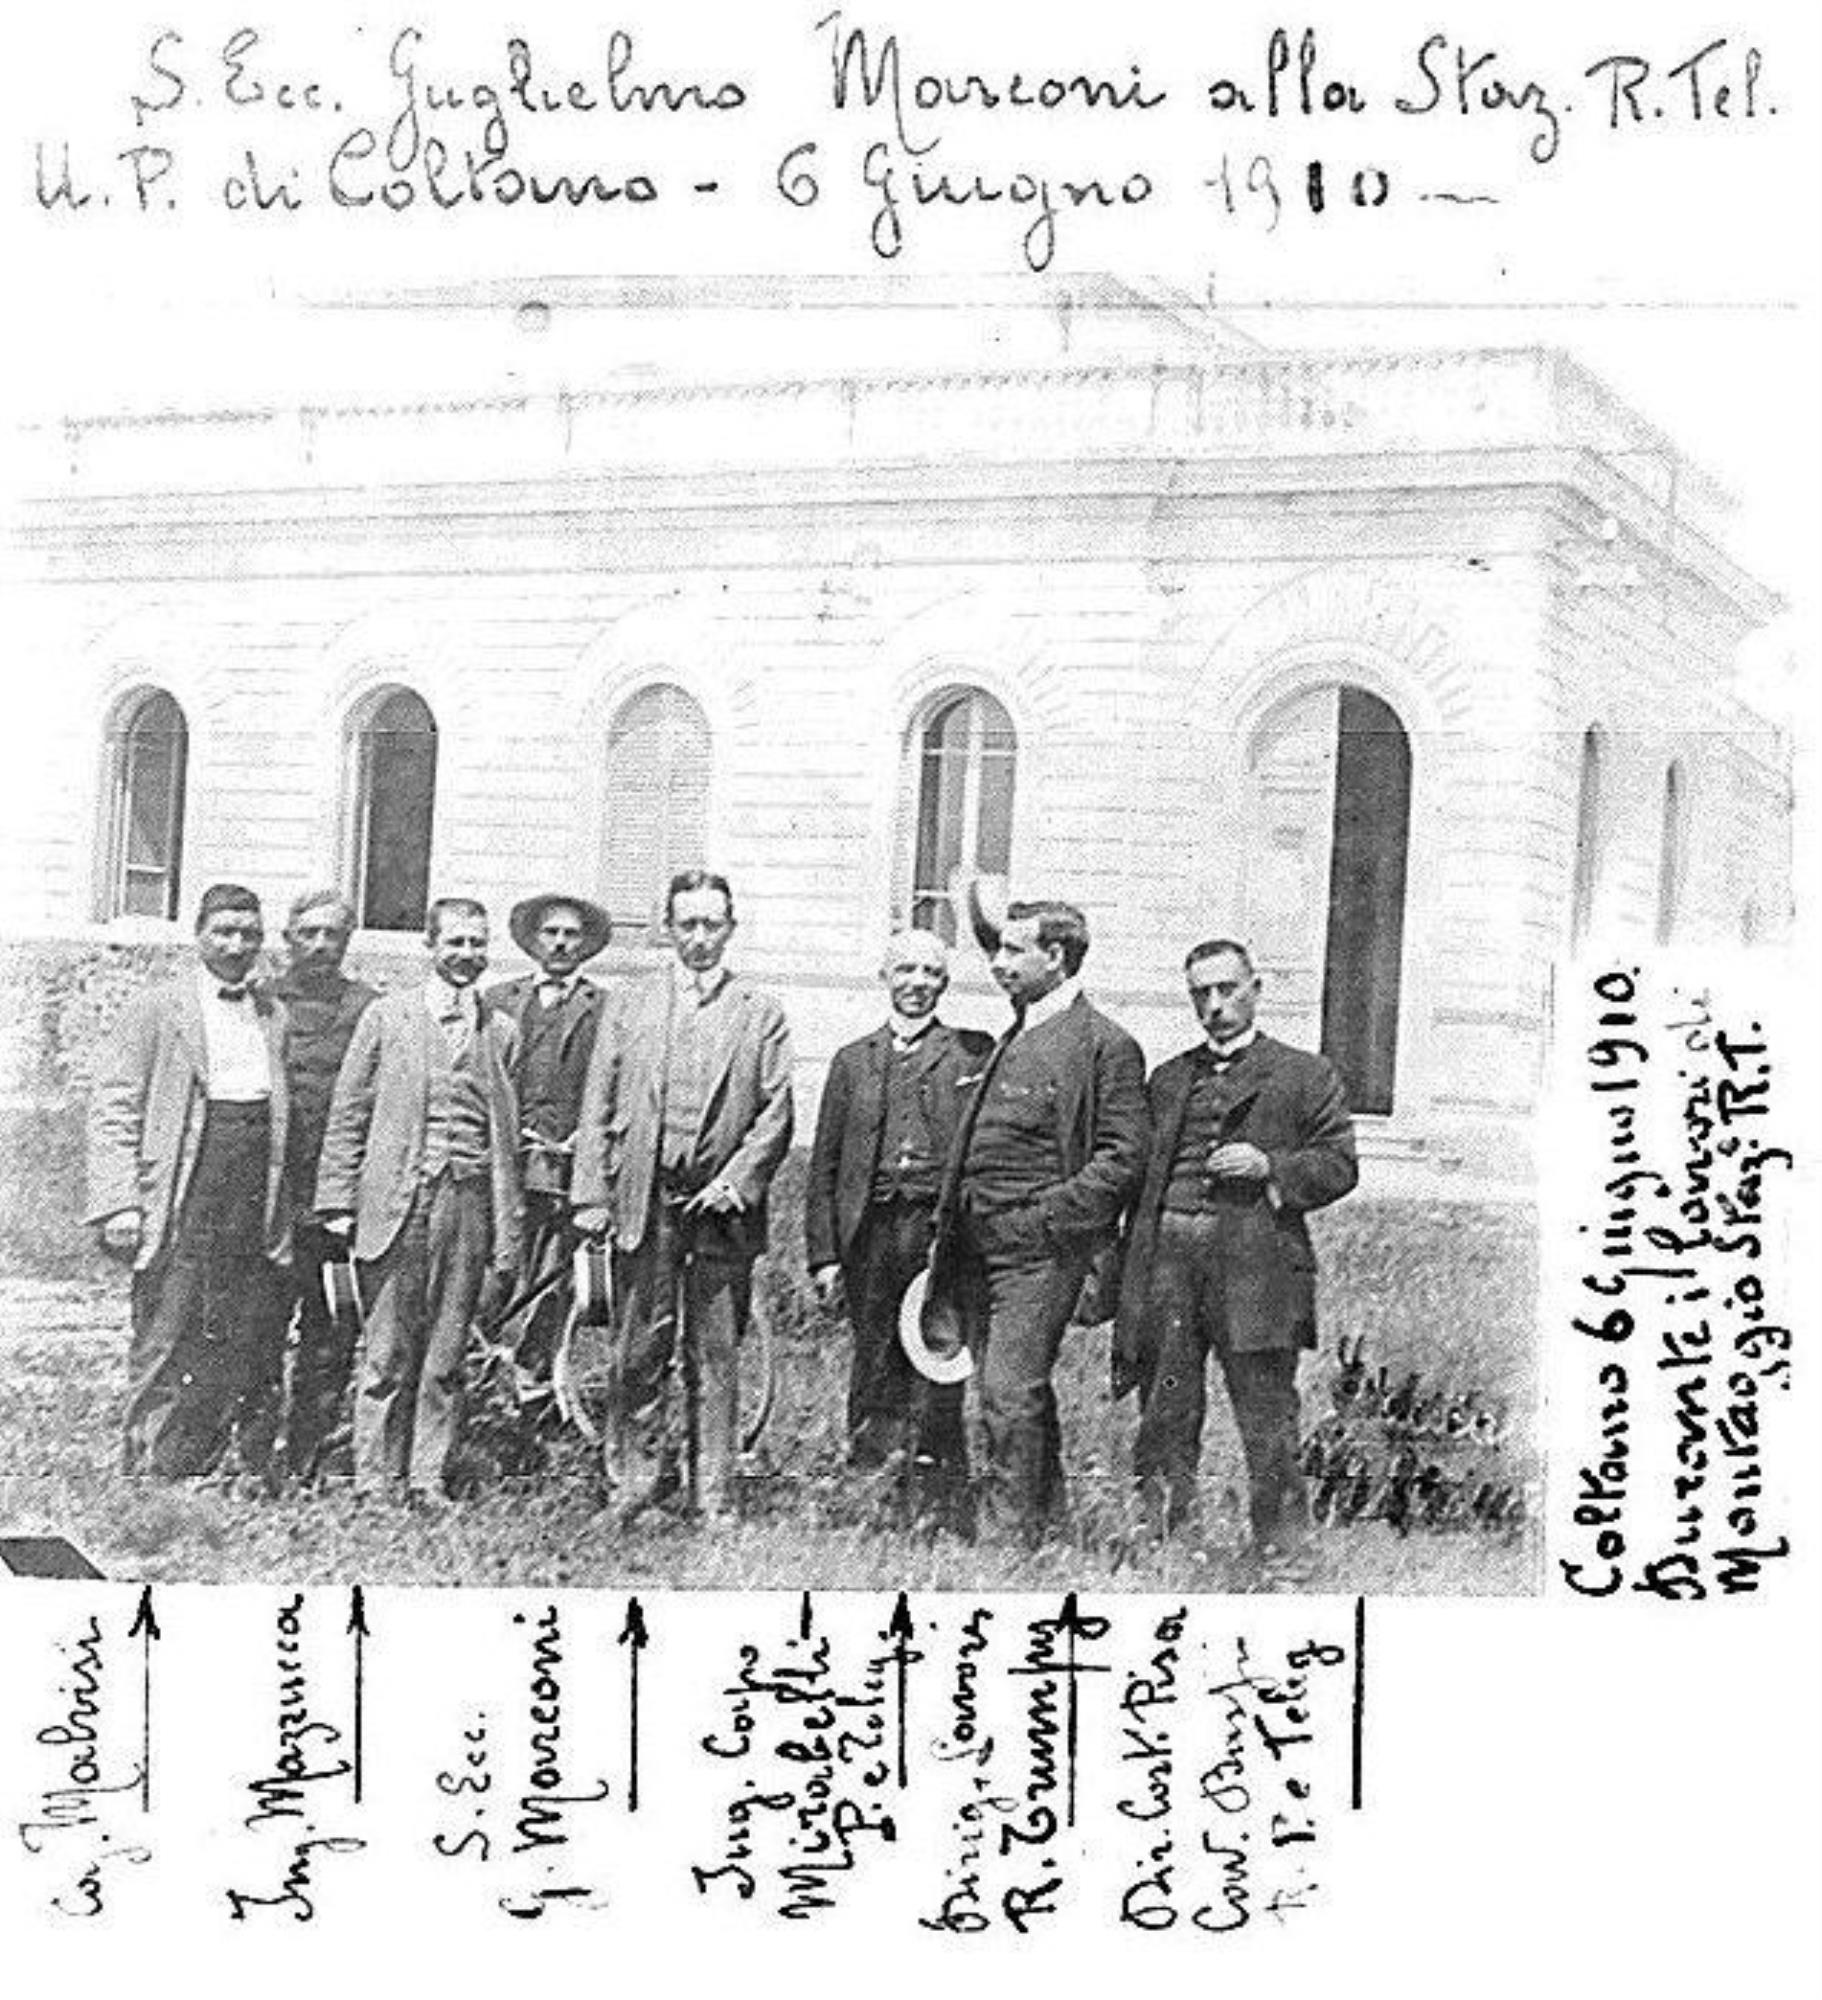 S. Ecc. Guglielmo Marconi alla Staz. R. Tel.
U. P. di Coltano - 6 Giugno 1910
Coltano 6 Giugno 1910.
Durante i lavori di
Montaggio Staz. R.T.
Ing. Mazzucca
S. Ecc.
G. Marconi
Ing. Capo
Mirabelli
P. e Teleg.
Dirig. Lavori
R. Trumpy
Dir. Cost. Pisa
Cav.
R. P. e Teleg